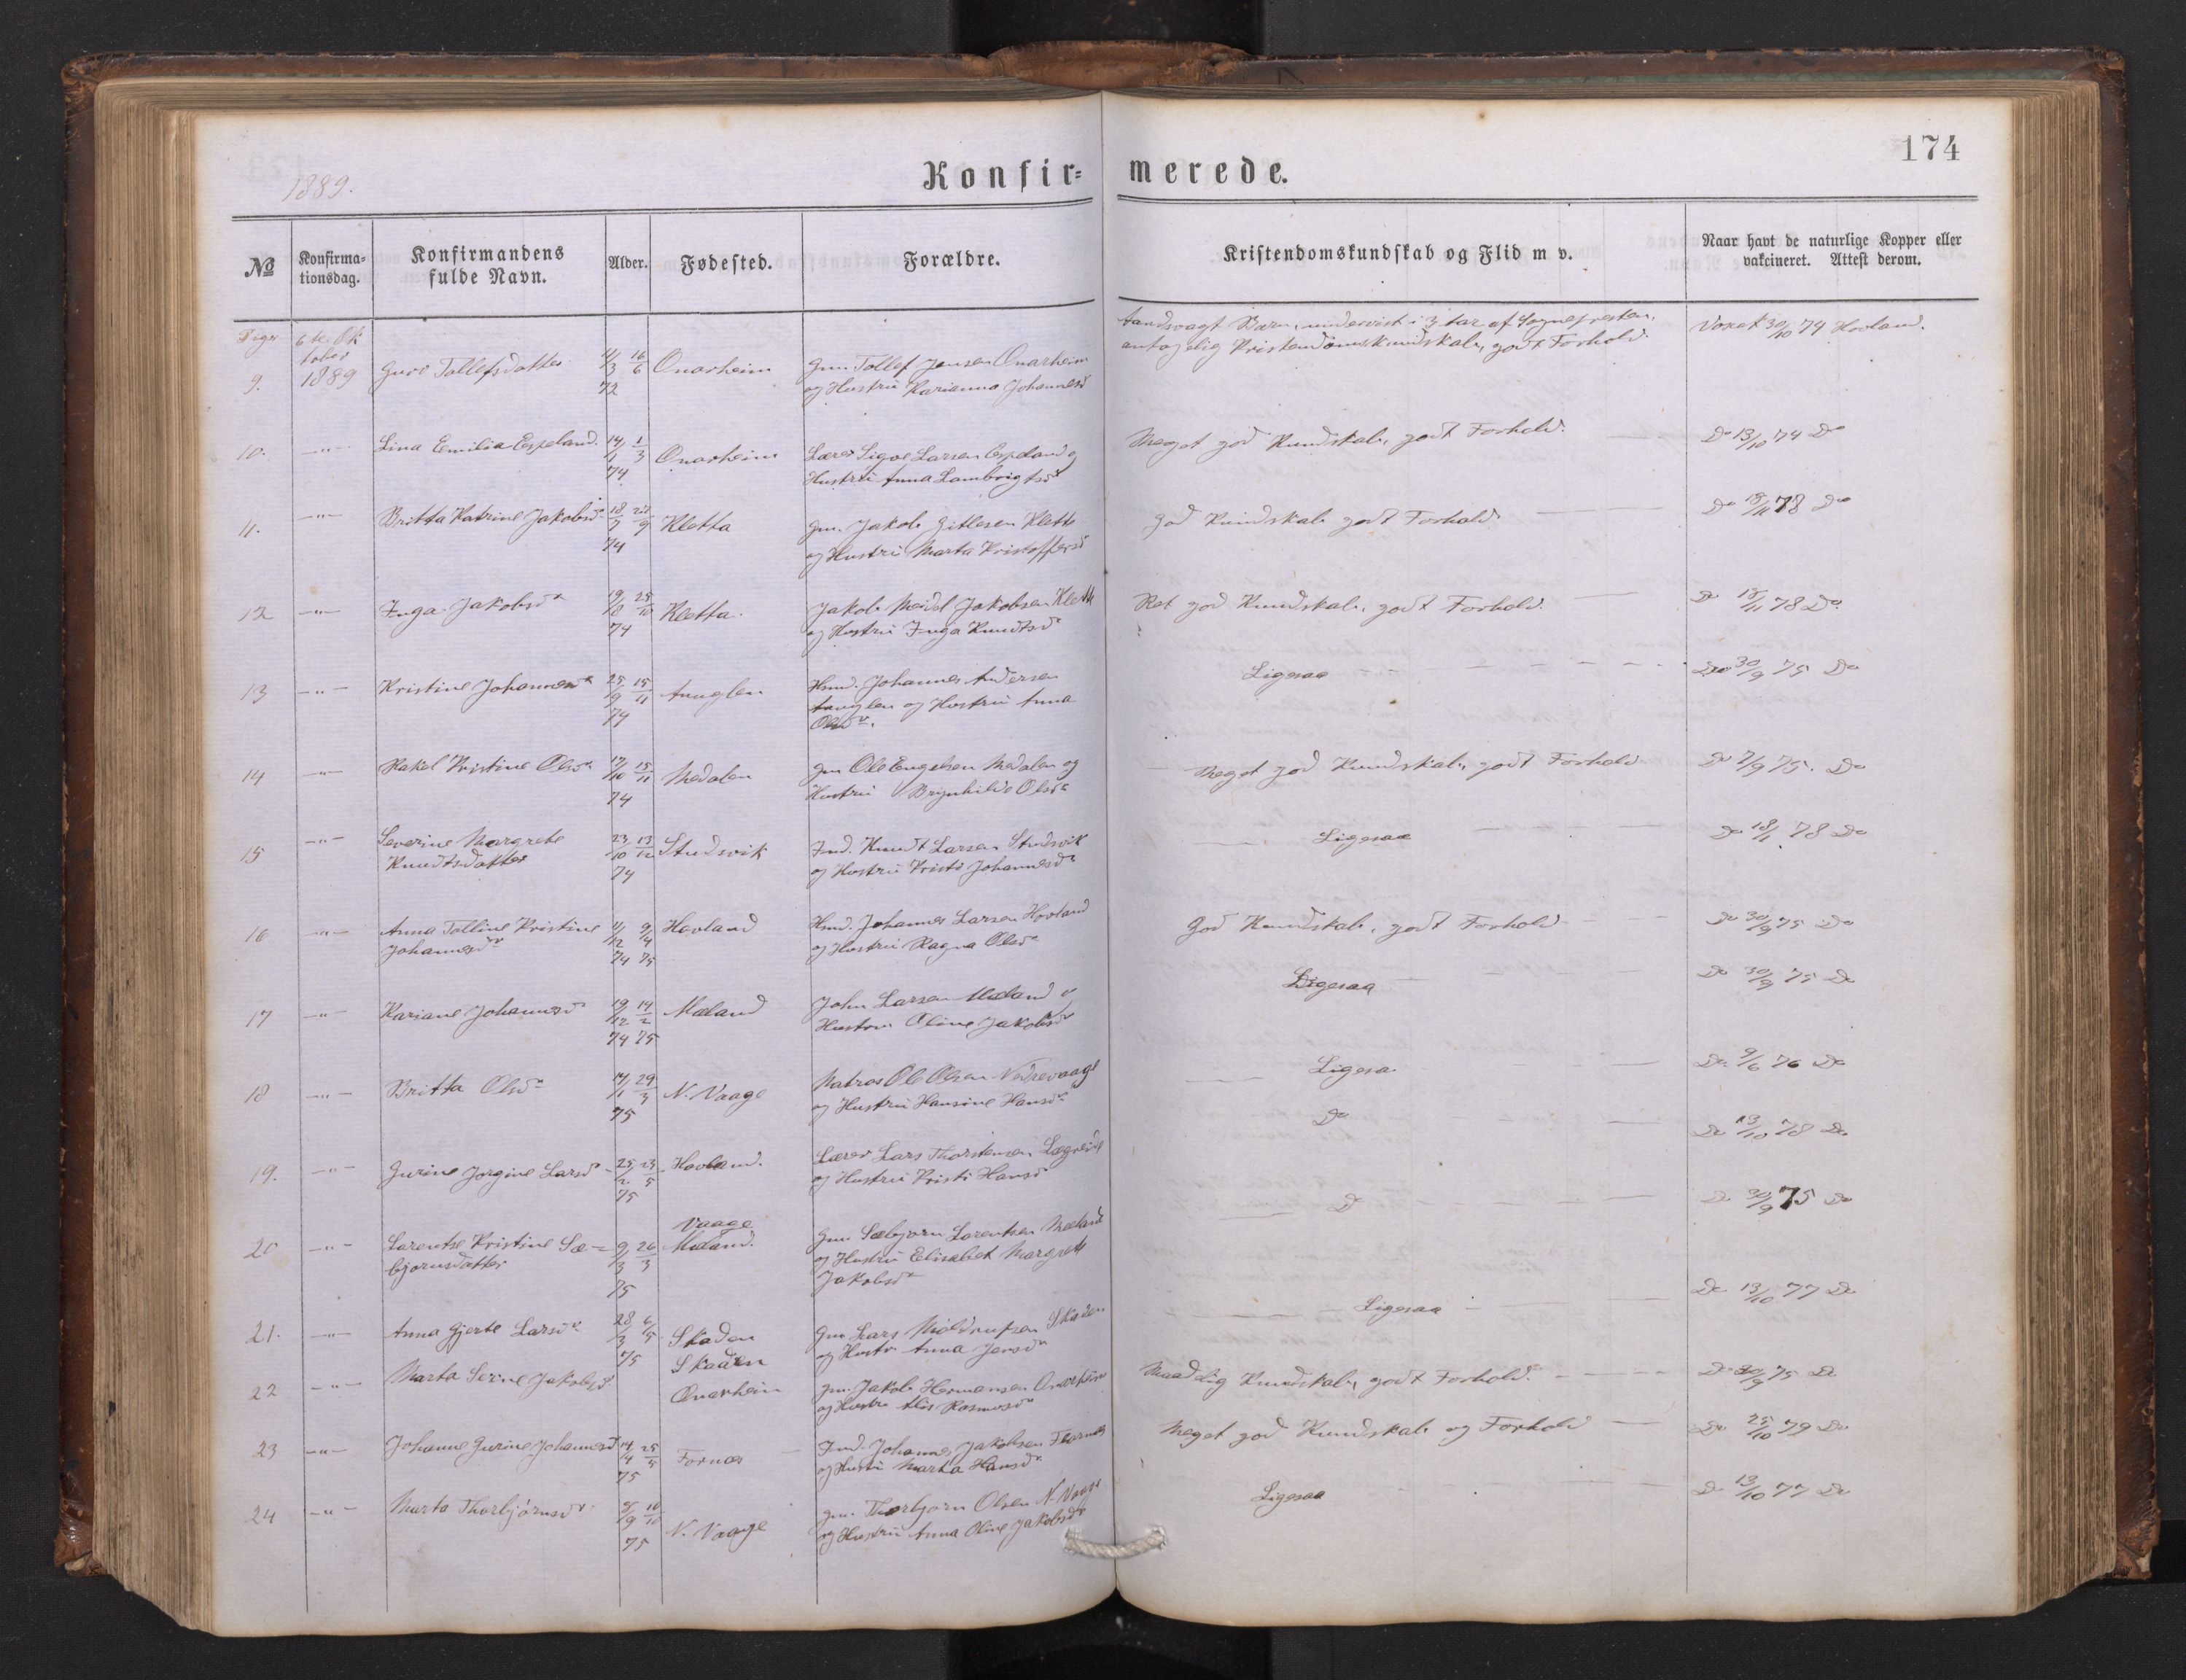 174
1889.
Konfir= merede.
№ Konfirma= tionsdag. Konfirmandens fulde Navn. Alder. Fødested. Forældre. Kristendomskundskab og Flid m v. Naar havt de naturlige Kopper eller vakcineret. Attest derom.
Piger 6te Ok
tober
1889
9. Guro Tollefsdatter 11/3 72 16/6 Onarheim Gm. Tollef Jensen Onarheim
og Hustru Karianna Johannesd
Aandsvagt Barn, undervist i 3 Aar af Sognepresten,
antagelig Kristendomskundskab, godt Forhold. Vaxet 30/10 74 Hovland.
10. —"— Lina Emilia Espeland. 14/1 74 1/3 Onarheim Lærer Sigve Larsen Espeland og
Hustru Anna Lambrigtsdr
Meget god Kundskab, godt Forhold. Do 13/10 74 Do
11. —"— Britta Katrine Jakobsdr 18/7 74 Kletta Gm. Jakob Gitlesen Kletta
og Hustru Marta Kristoffersd
God Kundskab godt Forhold Do 18/11 78 Do
12 —"— Inga Jakobsdr 19/8 74 25/10 Kletta. Jakob Meidel Jakobsen Kletta
og Hustru Inga Knudtsd
Ret god Kundskab, godt Forhold. Do 18/11 78 Do.
13 —"— Kristine Johannesdr 25/9 74 15/11 Aanglen Hsmd. Johannes Andersen
Aanglen og Hustru Anna
Olsdr.
Ligesaa Do 30/9 75 Do
14 —"— Rakel Kristine Olsdr 17/10 74 15/11 Medalen Gm Ole Engelsen Medalen og
Hustru Brynhilde Olsdr
Meget god Kundskab, godt Forhold Do 7/9 75. Do
15 —"— Severine Margrete
Knudtsdatter 23/10 74 13/12 Studsvik Ind. Knudt Larsen Studsvik
og Hustru Kristi Johannesdr
Ligesaa Do 18/11 78 Do
16 —"— Anna Tolline Kristine
Johannesdr 11/12 74 9/4 75 Hovland Hsmd. Johannes Larsen Hovland
og Hustru Ragna Olsdr
God Kundskab, godt Forhold Do 30/9 75 Do
17 —"— Kariane Johannesd 19/12 74 14/2 75 Mæland John Larsen Mæland
Hustru Oline Jakobsdr
Ligesaa Do 30/9 75 Do
18 —"— Britta Olsdr 14/1 75 29/3 N. Vaage Matros Ole Olsen Nedrevaage
og Hustru Hansine Hansdr
Ligesa Do. 9/6 76 Do
19. —"— Gurine Jørgine Larsd 25/2 75 23/5 Hovland. Lærer Lars Thorstensen Lægreid
og Hustru Kristi Hansd
Do Do 13/10 78 Do
20 —"— Larentse Kristine Sæ=
bjørnsdatter 9/3 75 26/3 Vaage
Mæland. Gm Sæbjørn Lorentsen Mæland
og Hustru Elisabet Margrete
Jakobsdr
D Do 30/9 75 Do
21. —"— Anna Gjerte Larsdr 28/3 75 6/5 Skaden Gm Lars Skaden
og Hustr Anna Jensdr
Ligesaa Do 13/10 77 Do
22 —"— Marta Serine Jakobsd Skaden
Onarheim Gm. Jakob Hermansen Onarheim
og Hustru Rasmusdr
Maadelig Kundskab, godt Forhold. Do 30/9 75 Do
23 —"— Johanne Gurine Johannesd 14/4 75 25/5 Fornæs Ind. Johannes Jakobsen Fornæs
og Hustru Marta Hansdr
Meget god Kundskab og Forhold Do 25/10 79 Do
24 —"— Marta Thorbjørnsdr. 75 N. Vaage Gm. Thorbjørn Olsen N. Vaage
og Hustru Anna Oline Jakobsdr
Ligesaa Do 13/10 77 Do